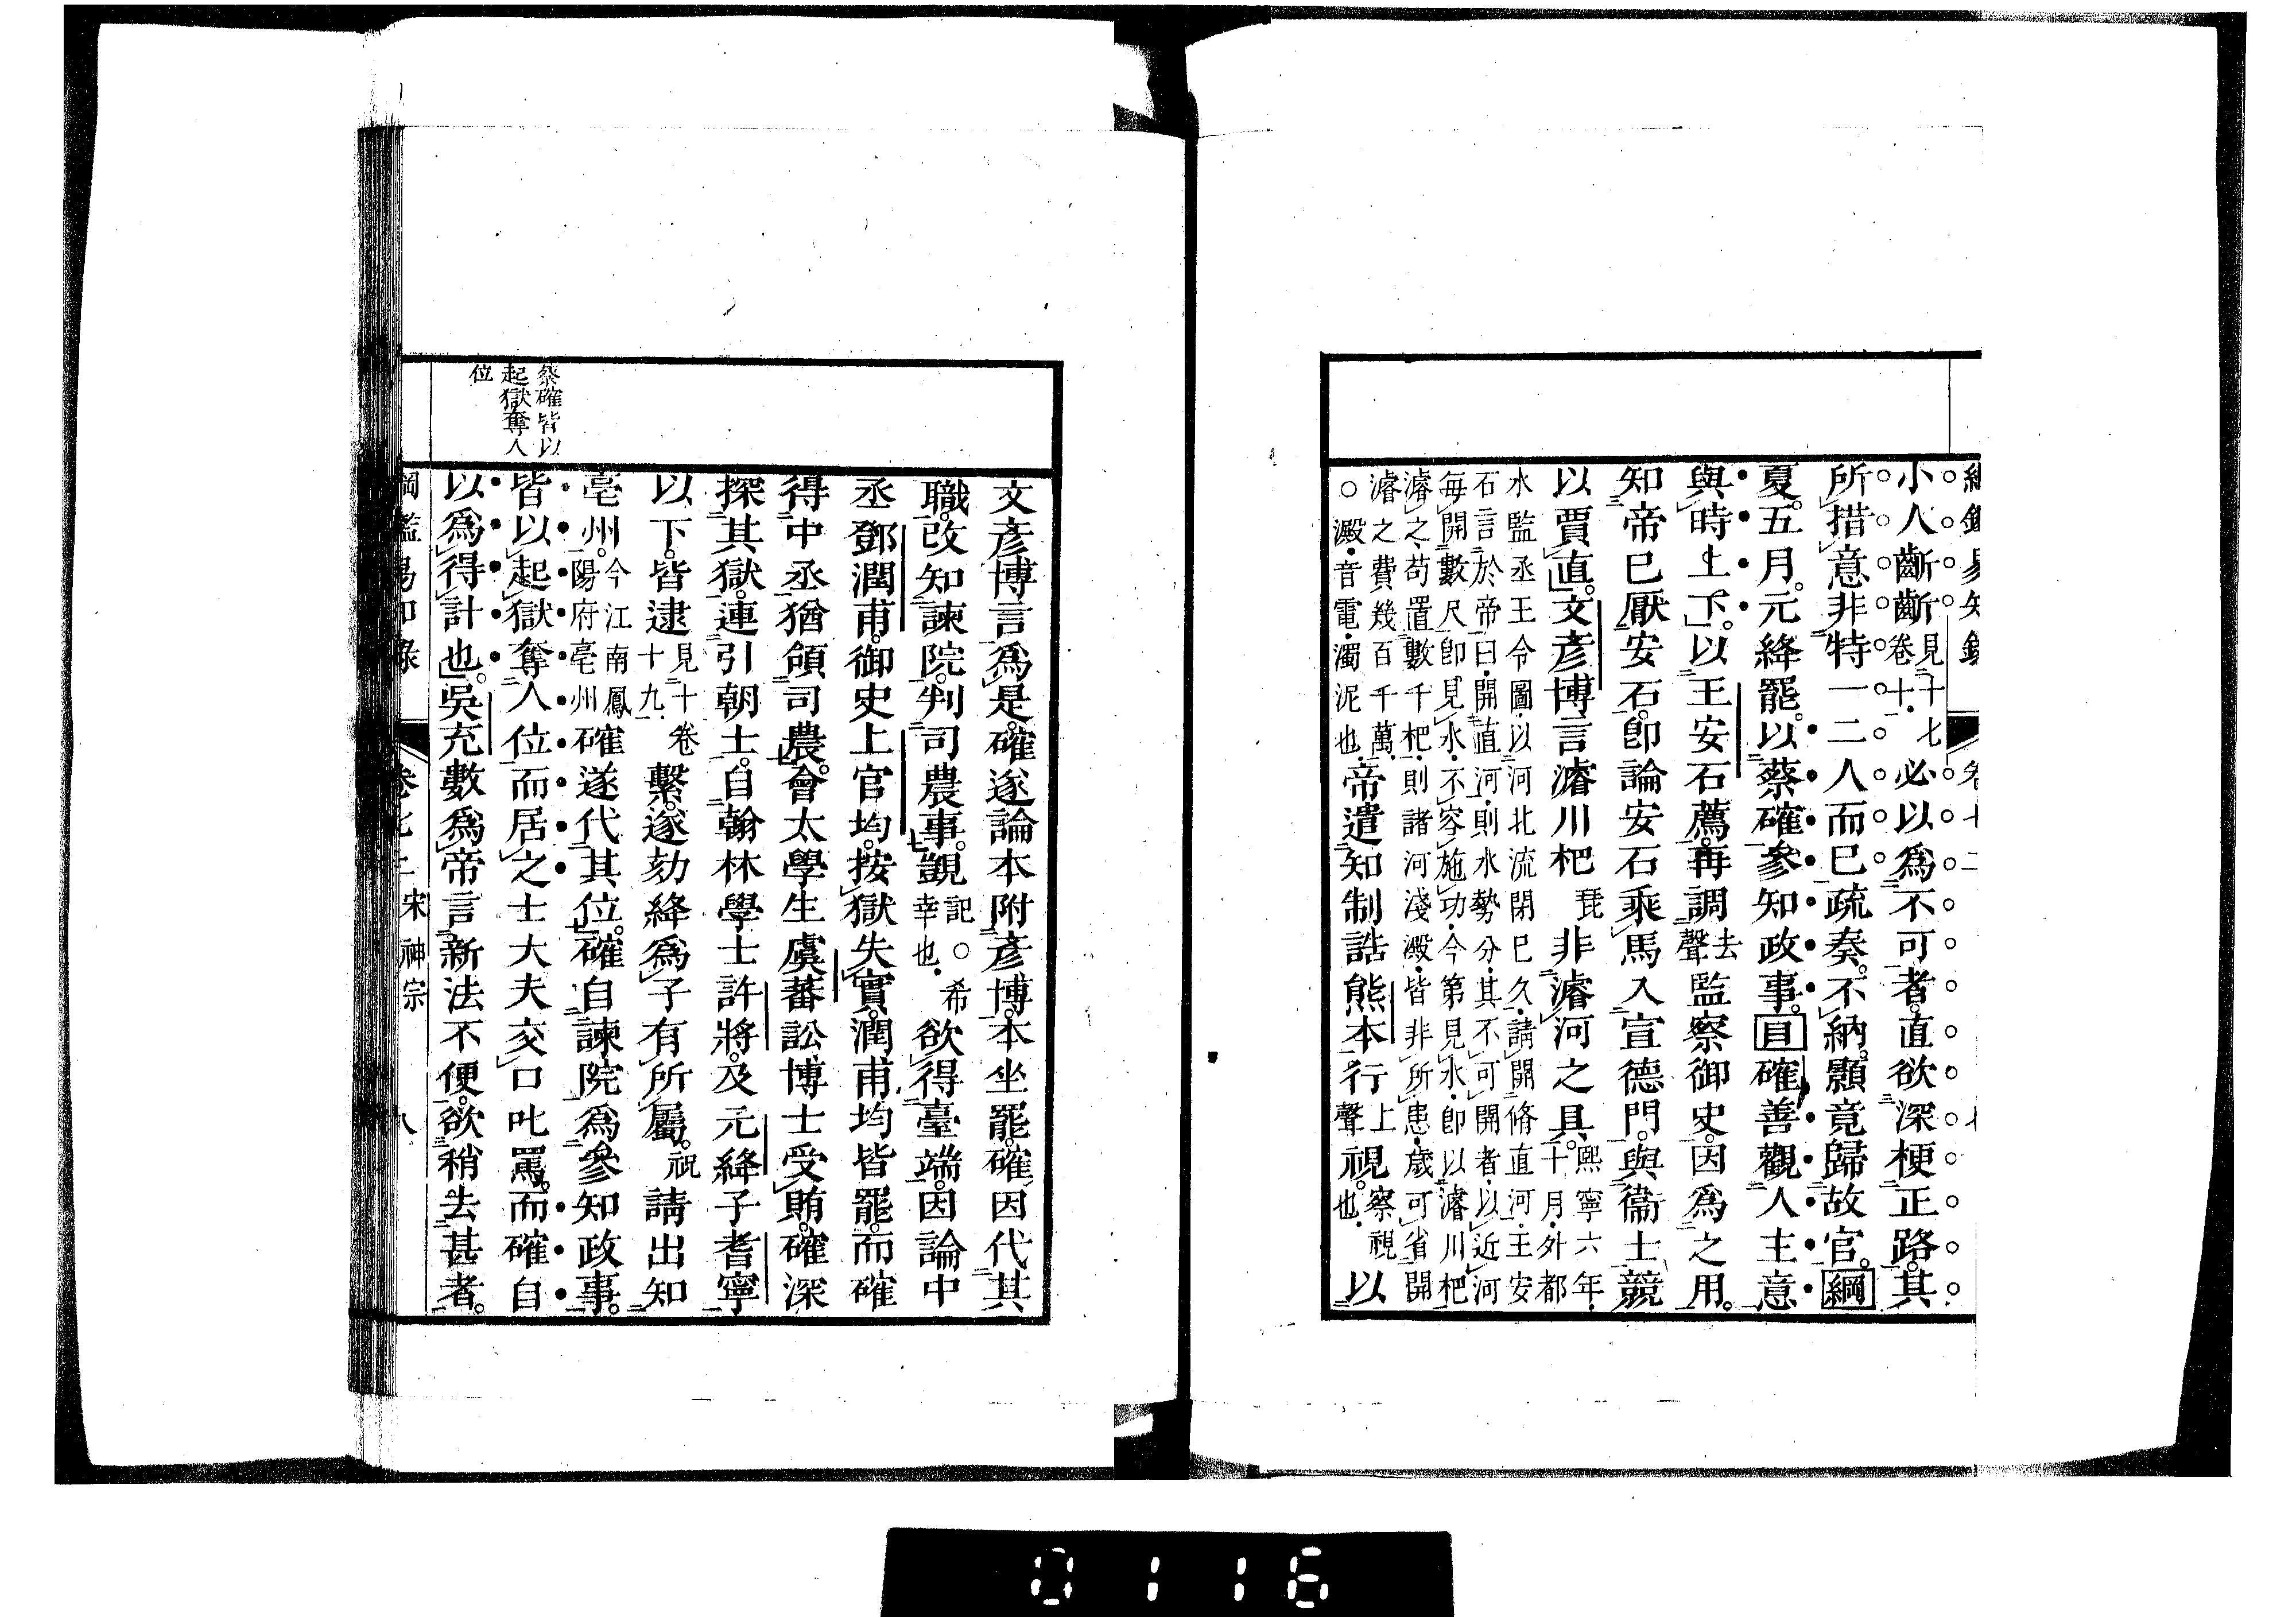 小人齗齗見十七卷十必以爲不可者。直欲深梗正路。其
所措意。非特一二人而已。疏奏。不納。顥竟歸故官。綱
夏。五月。元絳罷。以蔡確參知政事。目確善觀人主意
與時上下。以王安石薦。再調去聲監察御史。因爲之用。
知帝已厭安石。卽論安石乘馬入宣德門。與衞士競
以賈直。文彥博言濬川杷琵非濬河之具。熙寧六年十月外都
水監丞王令圖以河北流閉已久請開修直河王安
石言於帝曰開直河則水勢分其不可開者以近河
每開數尺卽見水不容施功今第見水卽以濬川杷
濬之苟置數千杷則諸河淺澱皆非所患歲可省開
濬之費幾百千萬
○澱音電濁泥也帝遣知制誥熊本行上聲視察視也以
文彥博言爲是。確遂論本附彥博。本坐罷。確因代其
職。改知諫院。判司農事。覬記○希幸也欲得臺端。因論中
丞鄧潤甫。御史上官均。按獄失實。潤甫均皆罷。而確
得中丞。猶領司農。會太學生虞蕃訟博士受賄。確深
探其獄。連引朝士。自翰林學士許將。及元絳子耆寧
以下。皆逮見十卷十九繫。遂劾絳爲子有所屬。祝請出知
亳州。今江南鳳陽府亳州確遂代其位。確自諫院爲參知政事。
皆以起獄奪人位而居之。士大夫交口叱罵。而確自
以爲得計也。吳充數爲帝言新法不便。欲稍去甚者。
宋神宗
八
蔡確皆以
起獄奪人
位
0116